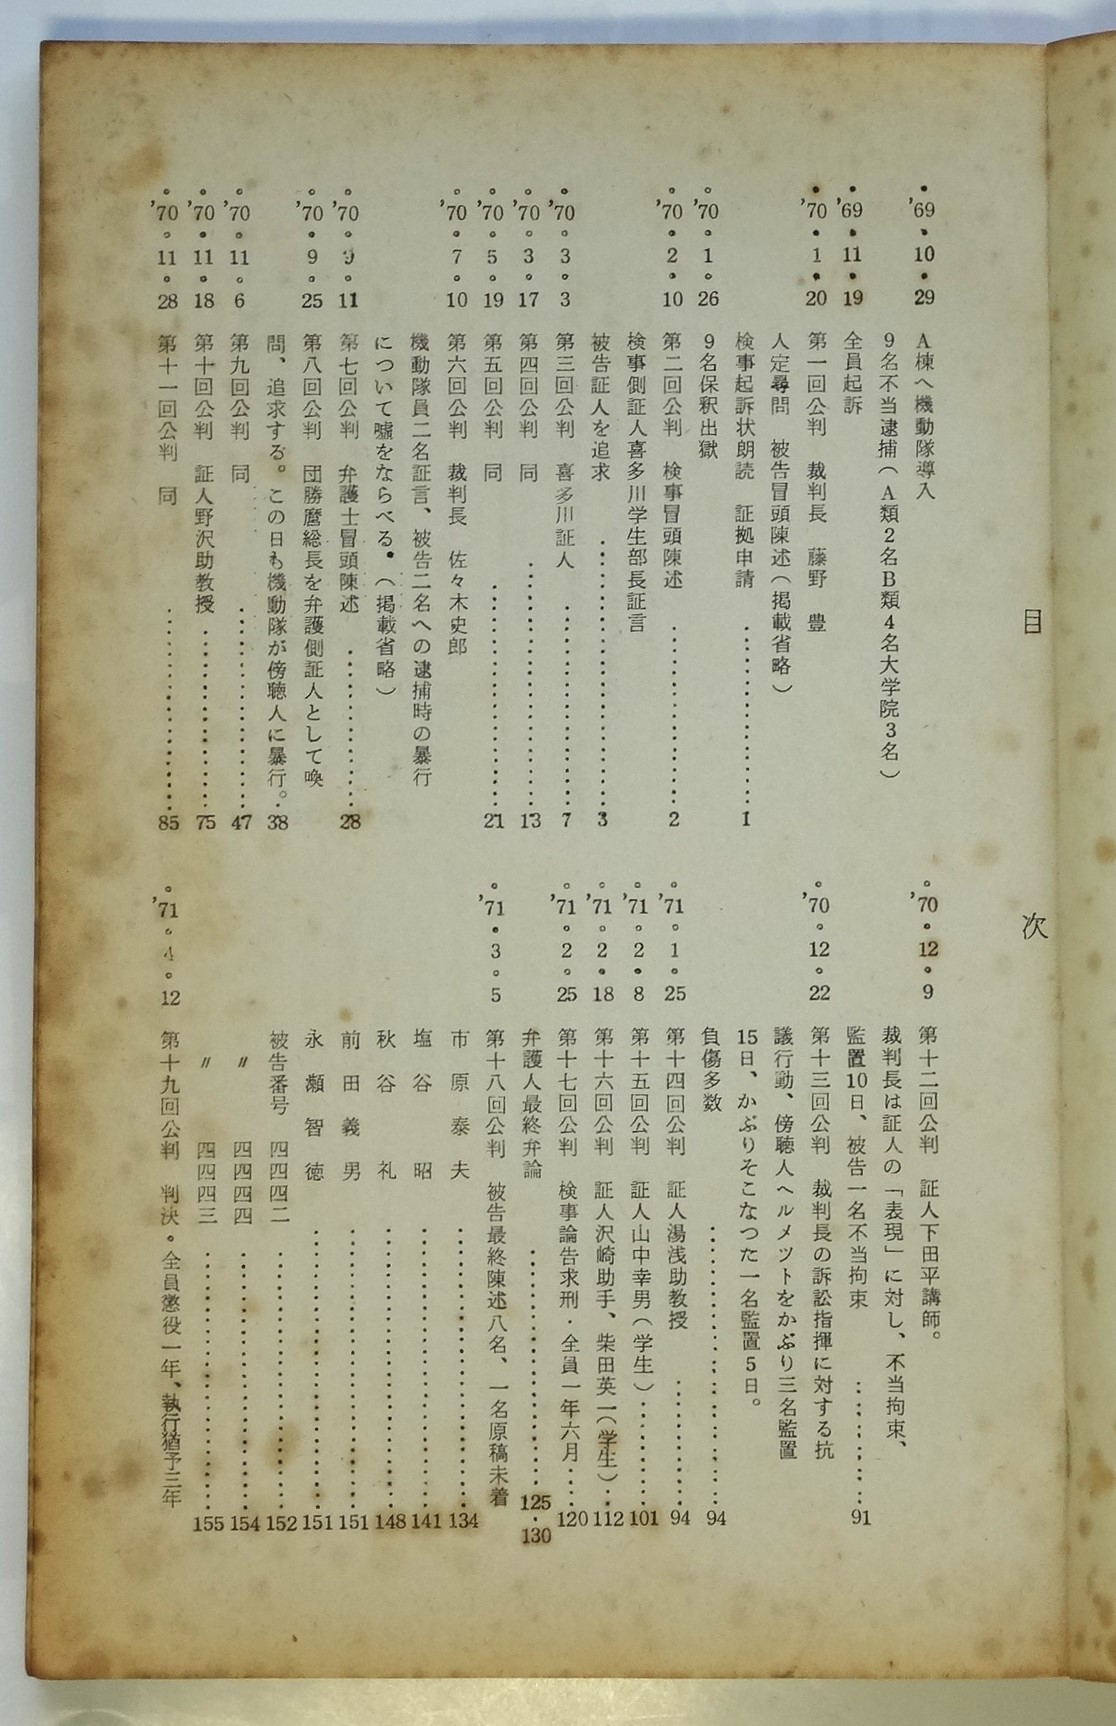 目次
。'69・10・29 A棟へ機動隊導入
9名不当逮捕(A類2名B類4名大学院3名)
。'69・11・19 全員起訴
。'70・1・20 第一回公判 裁判長 藤野 豊
人定尋問 被告冒頭陳述(掲載省略)
検事起訴状朗読 証拠申請 …………… 1
。'70・1・26 9名保釈出獄
。'70・2・10 第二回公判 検事冒頭陳述 …………… 2
検事側証人喜多川学生部長証言
被告証人を追求 …………… 3
。'70・3・3 第三回公判 喜多川証人 …………… 7
。'70・3・17 第四回公判 同 …………… 13
。'70・5・19 第五回公判 同 …………… 21
。'70・7・10 第六回公判 裁判長 佐々木史郎
機動隊員二名証言、被告二名への逮捕時の暴行
について嘘をならべる。(掲載省略)
。'70・9・11 第七回公判 弁護士冒頭陳述 …………… 28
。'70・9・25 第八回公判 団勝麿総長を弁護側証人として喚
問、追求する。この日も機動隊が傍聴人に暴行。… 38
。'70・11・6 第九回公判 同 …………… 47
。'70・11・18 第十回公判 証人野沢助教授 …………… 75
。'70・11・28 第十一回公判 同 …………… 85
。'70・12・9 第十二回公判 証人下田平講師。
裁判長は証人の「表現」に対し、不当拘束、
監置10日、被告一名不当拘束 …………… 91
。'70・12・22 第十三回公判 裁判長の訴訟指揮に対する抗
議行動、傍聴人ヘルメツトをかぶり三名監置
15日、かぶりそこなつた一名監置5日。
負傷多数 …………… 94
。'71・1・25 第十四回公判 証人湯浅助教授 …………… 94
。'71・2・8 第十五回公判 証人山中幸男(学生) …………… 101
。'71・2・18 第十六回公判 証人沢崎助手、柴田英一(学生) … 112
。'71・2・25 第十七回公判 検事論告求刑・全員一年六月 … 120
弁護人最終弁論 …………… 125・130
。'71・3・5 第十八回公判 被告最終陳述八名、一名原稿未着
市原泰夫 …………… 134
塩谷 昭 …………… 141
秋谷 礼 …………… 148
前田義男 …………… 151
永瀬智徳 …………… 151
被告番号 四四四二 …………… 152
〃 四四四四 …………… 154
〃 四四四三 …………… 155
。'71・4・12 第十九回公判 判決。全員懲役一年、執行猶予三年